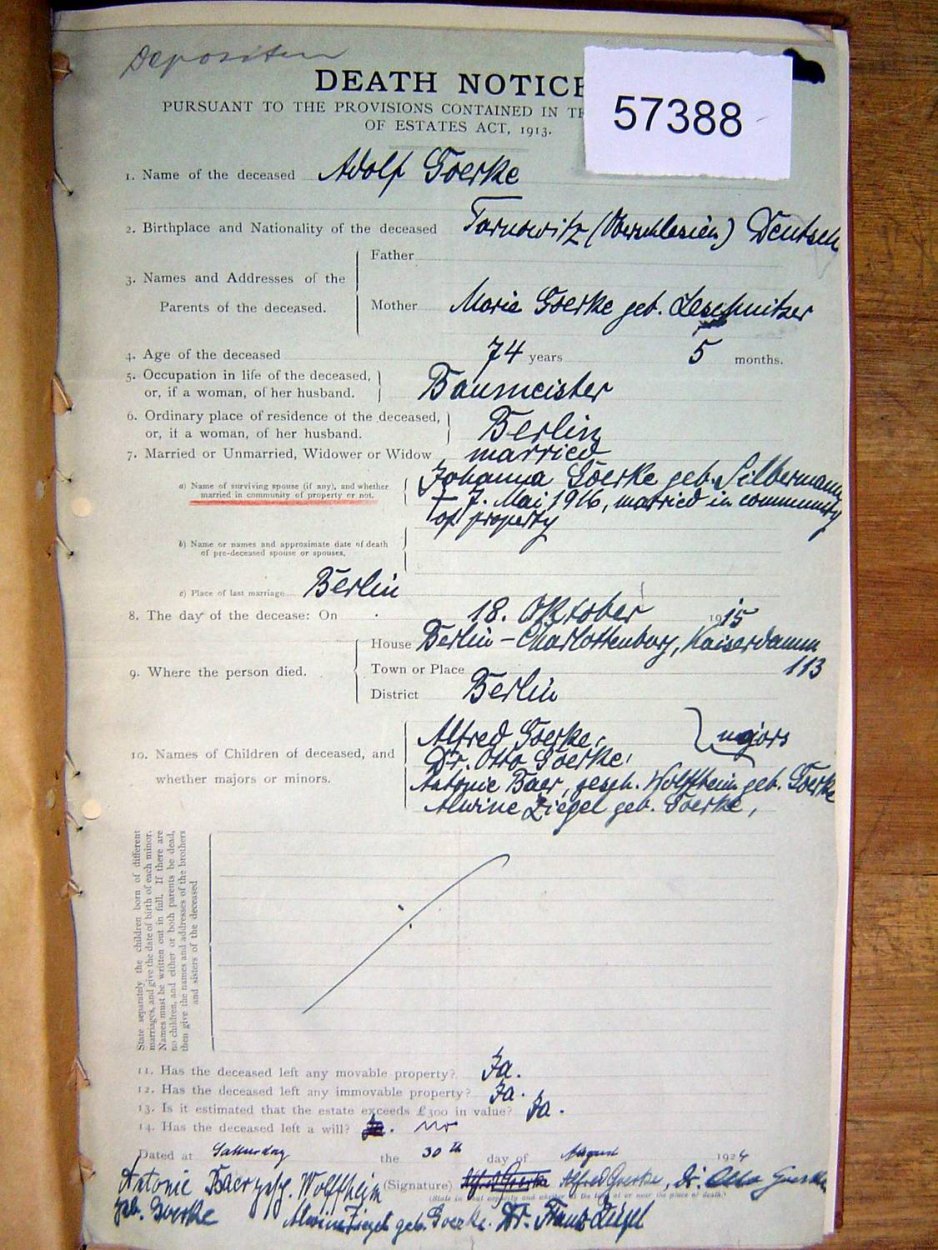 Depositen
DEATH NOTICE
57388
PURSUANT TO THE PROVISIONS CONTAINED IN
OF ESTATES ACT, 1913.
1. Name of the deceased Adolf Goerke
2. Birthplace and Nationality of the deceased Tarnowitz (Oberschlesien) Deutsch
3. Names and Addresses of the Parents of the deceased.
Father
Mother Marie Goerke geb. Leschnitzer
4. Age of the deceased 74 years 5 months.
5. Occupation in life of the deceased, or, if a woman, of her husband. Baumeister
6. Ordinary place of residence of the deceased, or, if a woman, of her husband. Berlin
7. Married or Unmarried, Widower or Widow married
a) Name of surviving spouse (if any), and whether married in community of property or not.
Johanna Goerke geb. Silbermann
† 7. Mai 1916, married in community
of property
b) Name or names and approximate date of death of pre-deceased spouse or spouses.
c) Place of last marriage Berlin
8. The day of the decease: On 18. Oktober 1915
9. Where the person died.
House Berlin-Charlottenburg, Kaiserdamm
113
Town or Place
District Berlin
10. Names of Children of deceased, and whether majors or minors.
Alfred Goerke, majors
Dr. Otto Goerke,
Antonie Baer, gesch. Wolffheim geb. Goerke
Alwine Ziegel geb. Goerke,
State separately the children born of different
marriages, and give the date of birth of each minor.
Names must be written out in full. If there are
no children, and either or both parents be dead,
then give the names and addresses of the brothers
and sisters of the deceased
11. Has the deceased left any movable property? Ja.
12. Has the deceased left any immovable property? Ja.
13. Is it estimated that the estate exceeds £300 in value? Ja.
14. Has the deceased left a will? no
Dated at Saturday the 30th day of August 1924
(Signature) Alfred Goerke Alfred Goerke, Dr. Otto Goerke
Antonie Baer gesch. Wolffheim
geb. Goerke
Alwine Ziegel geb. Goerke. Dr. Franz Ziegel